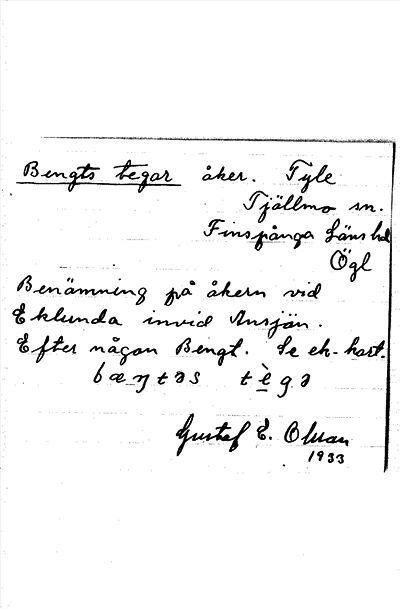 Bengts tegar åker. Tyle
Tjällmo sn.
Finspånga Läns hd
Ögl
Benämning på åkern vid
Eklunda invid Ansjön.
Efter någon Bengt. Se ek-kart.
bæŋtəs tègə
Gustaf E. Olsson
1933